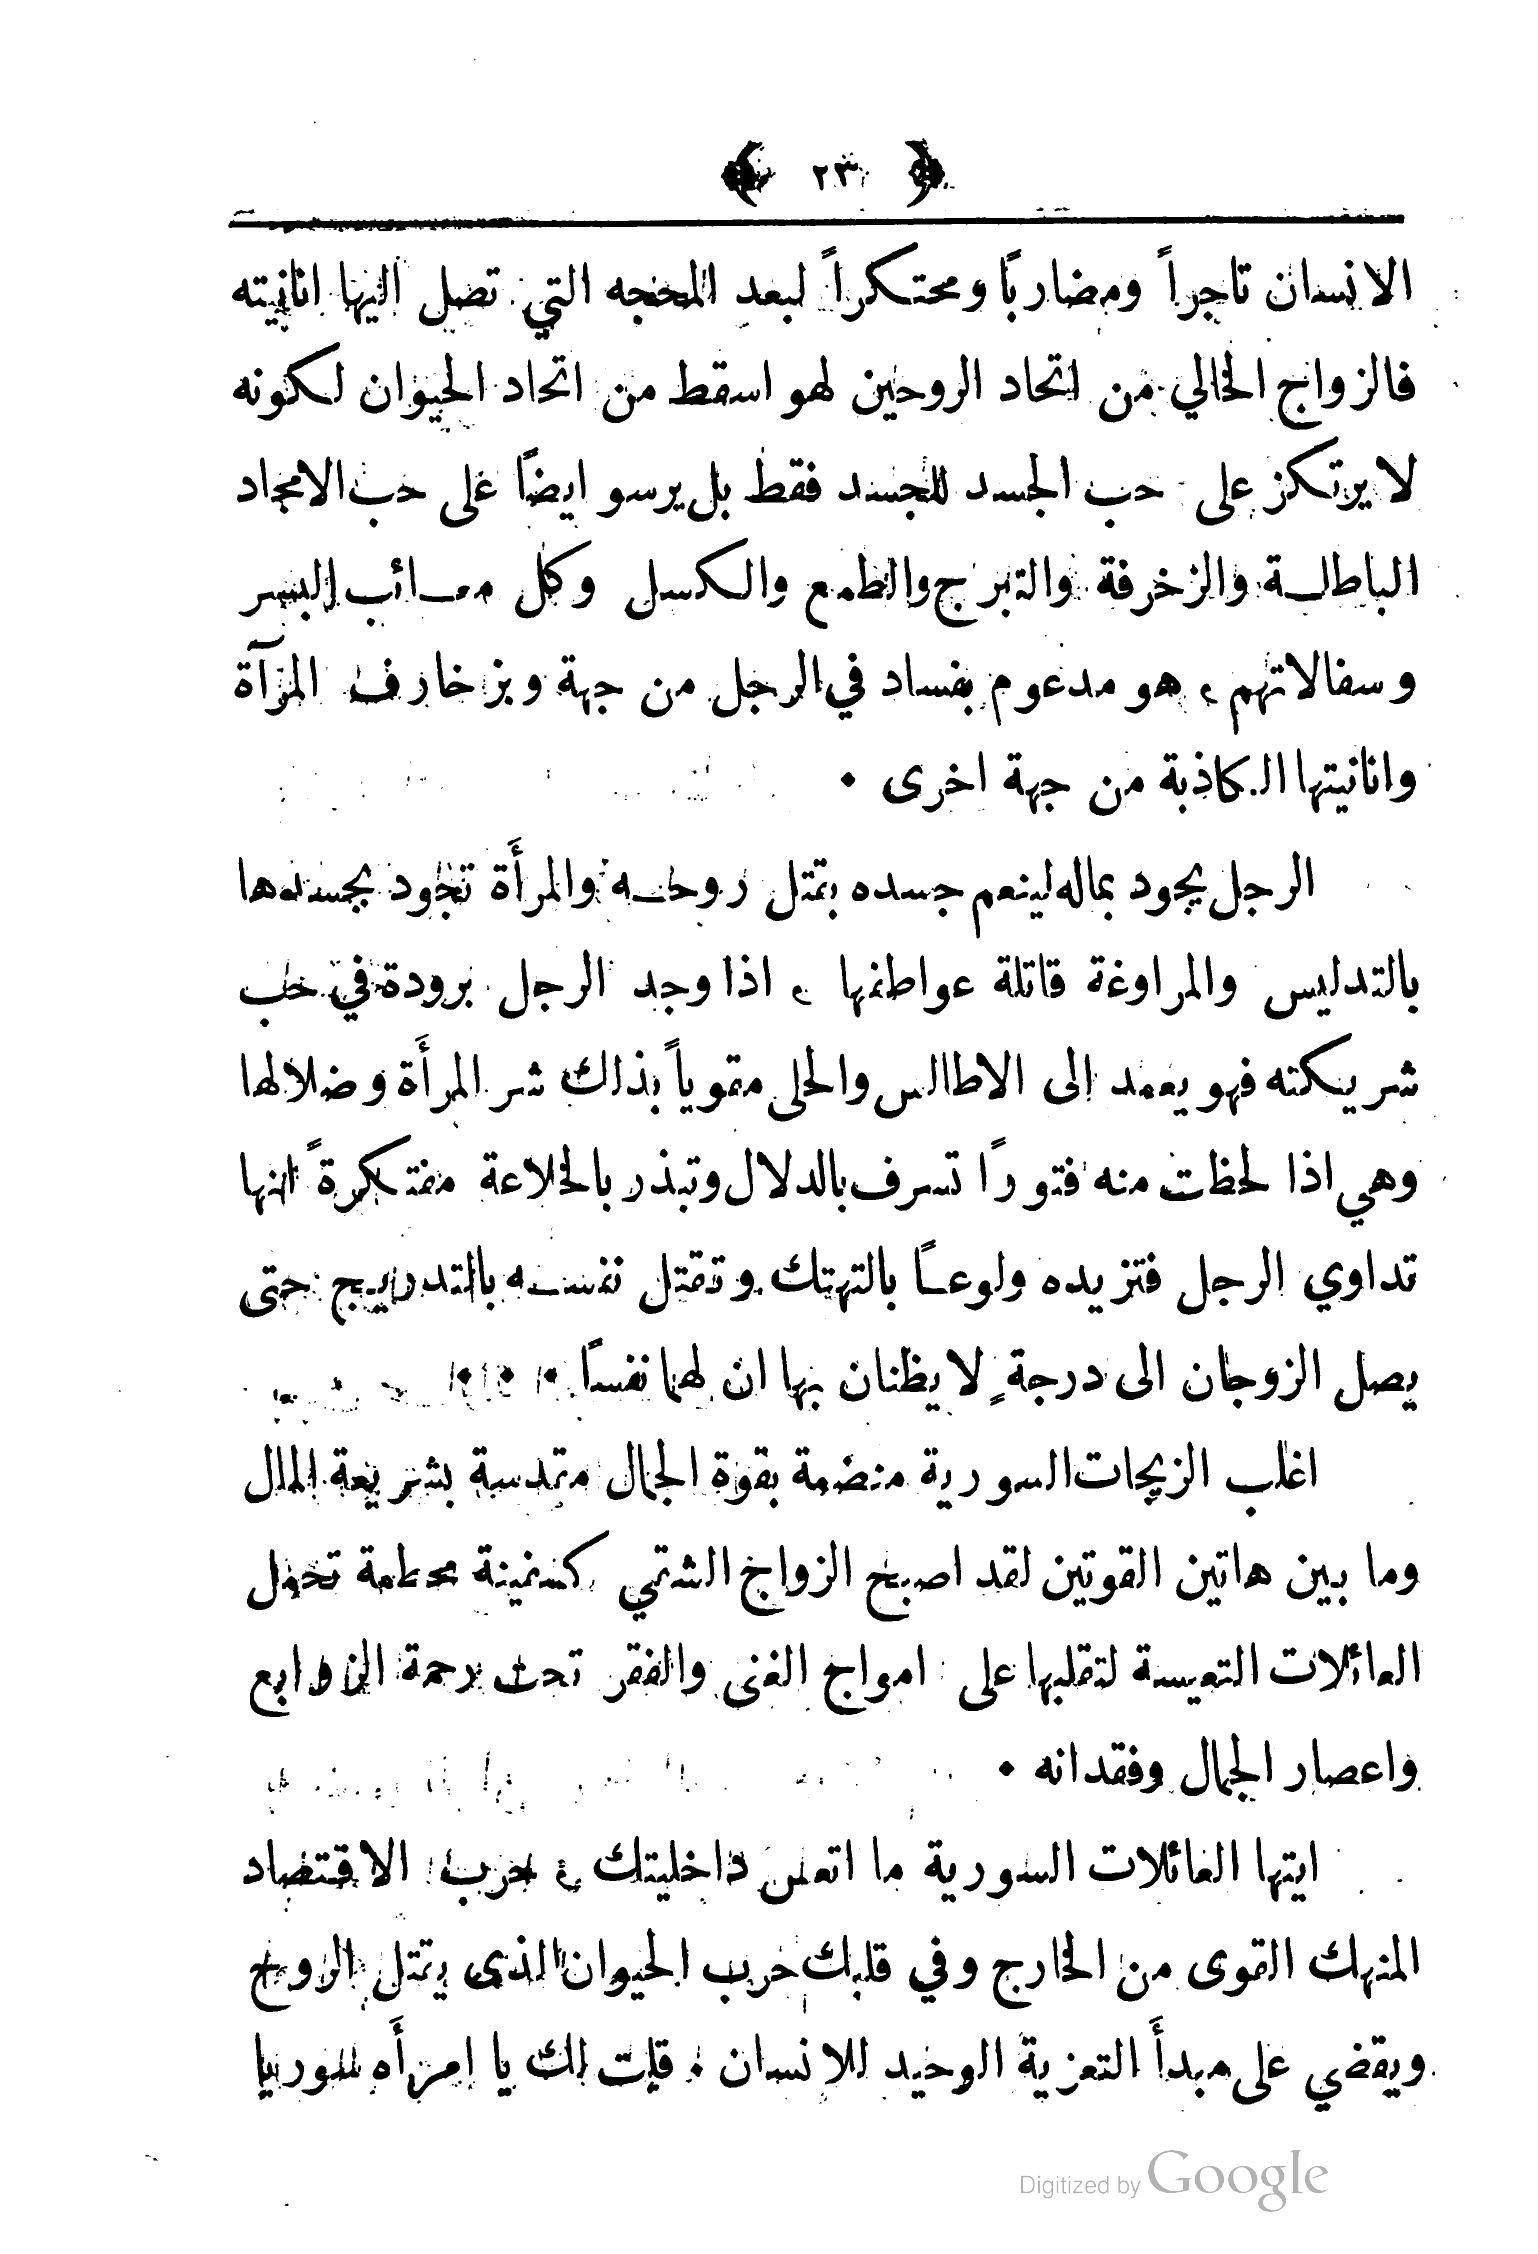 ﴿ ٢٣ ﴾
الانسان تاجراً ومضاربًا ومحتكراً لبعد المحجه التي تصل اليها انانيته
فالزواج الخالي من اتحاد الروحين لهو اسقط من اتحاد الحيوان لكونه
لا يرتكز على حب الجسد للجسد فقط بل يرسو ايضًا على حب الامجاد
الباطلة والزخرفة والتبرج والطمع والكسل وكل مصائب البشر
وسفالاتهم ، هو مدعوم بفساد في الرجل من جهة وبزخارف المرآة
وانانيتها الكاذبة من جهة اخرى ٠
الرجل يجود بماله لينعم جسده بقتل روحه والمرأة تجود بجسدها
بالتدليس والمراوغة قاتلة عواطفها ، اذا وجد الرجل برودة في حب
شريكته فهو يعمد الى الاطالس والحلى مقوياً بذلك شر المرأة وضلالها
وهي اذا لحظت منه فتورًا تسرف بالدلال وتبذر بالخلاعة مفتكرةً انها
تداوي الرجل فتزيده ولوعًا بالتهتك وتقتل نفسه بالتدريج حتى
يصل الزوجان الى درجةٍ لا يظنان بها ان لهما نفسًا ٠ ٠ ٠
اغلب الزيجات السورية منضمة بقوة الجمال متقدسة بشريعة المال
وما بين هاتين القوتين لقد اصبح الزواج الشقي كسفينة محطمة تحمل
العائلات التعيسة لتقلبها على امواج الغنى والفقر تحت رحمة الزوابع
واعصار الجمال وفقدانه ٠
ايتها العائلات السورية ما اتعس داخليتك ، حرب الاقتصاد
المنهك القوى من الخارج وفي قلبك حرب الحيوان الذي يقتل الروح
ويقضي على مبدأ التعزية الوحيد للانسان ، قلت لك يا امرأه سوريا
Digitized by Google